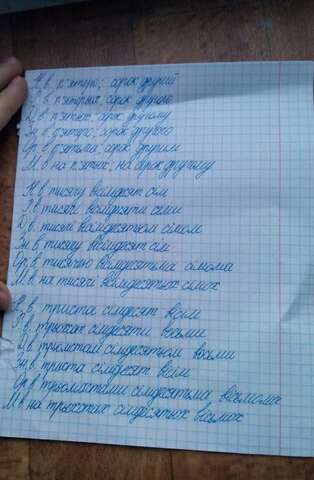 Н.в. п'ятеро; сорок другий
Р.в. п'ятьрьох; сорок другого
Д.в. п'ятьом; сорок другому
Зн.в. п'ятеро; сорок другого
Ор.в. п'ятьма; сорок другим
М.в. на п'ятьох; на сорок другому
Н.в тисячу вісімдесят сім
Р.в тисячі вісімдесяти семи
Д.в. тисячі вісімдесятьом сімом
Зн.в. тисячу вісімдесят сім
Ор.в. тисячею вісімдесятьма сімома
М.в. на тисячі вісімдесятьох сімох
Н.в. триста сімдесят вісім
Р.в. трьохсот сімдесяти восьми
Д.в. трьомстам сімдесятьом восьми
Зн.в. триста сімдесят вісім
Ор.в. трьомастами сімдесятьма вісьмома
М.в. на трьохстах сімдесятьох вісьмох